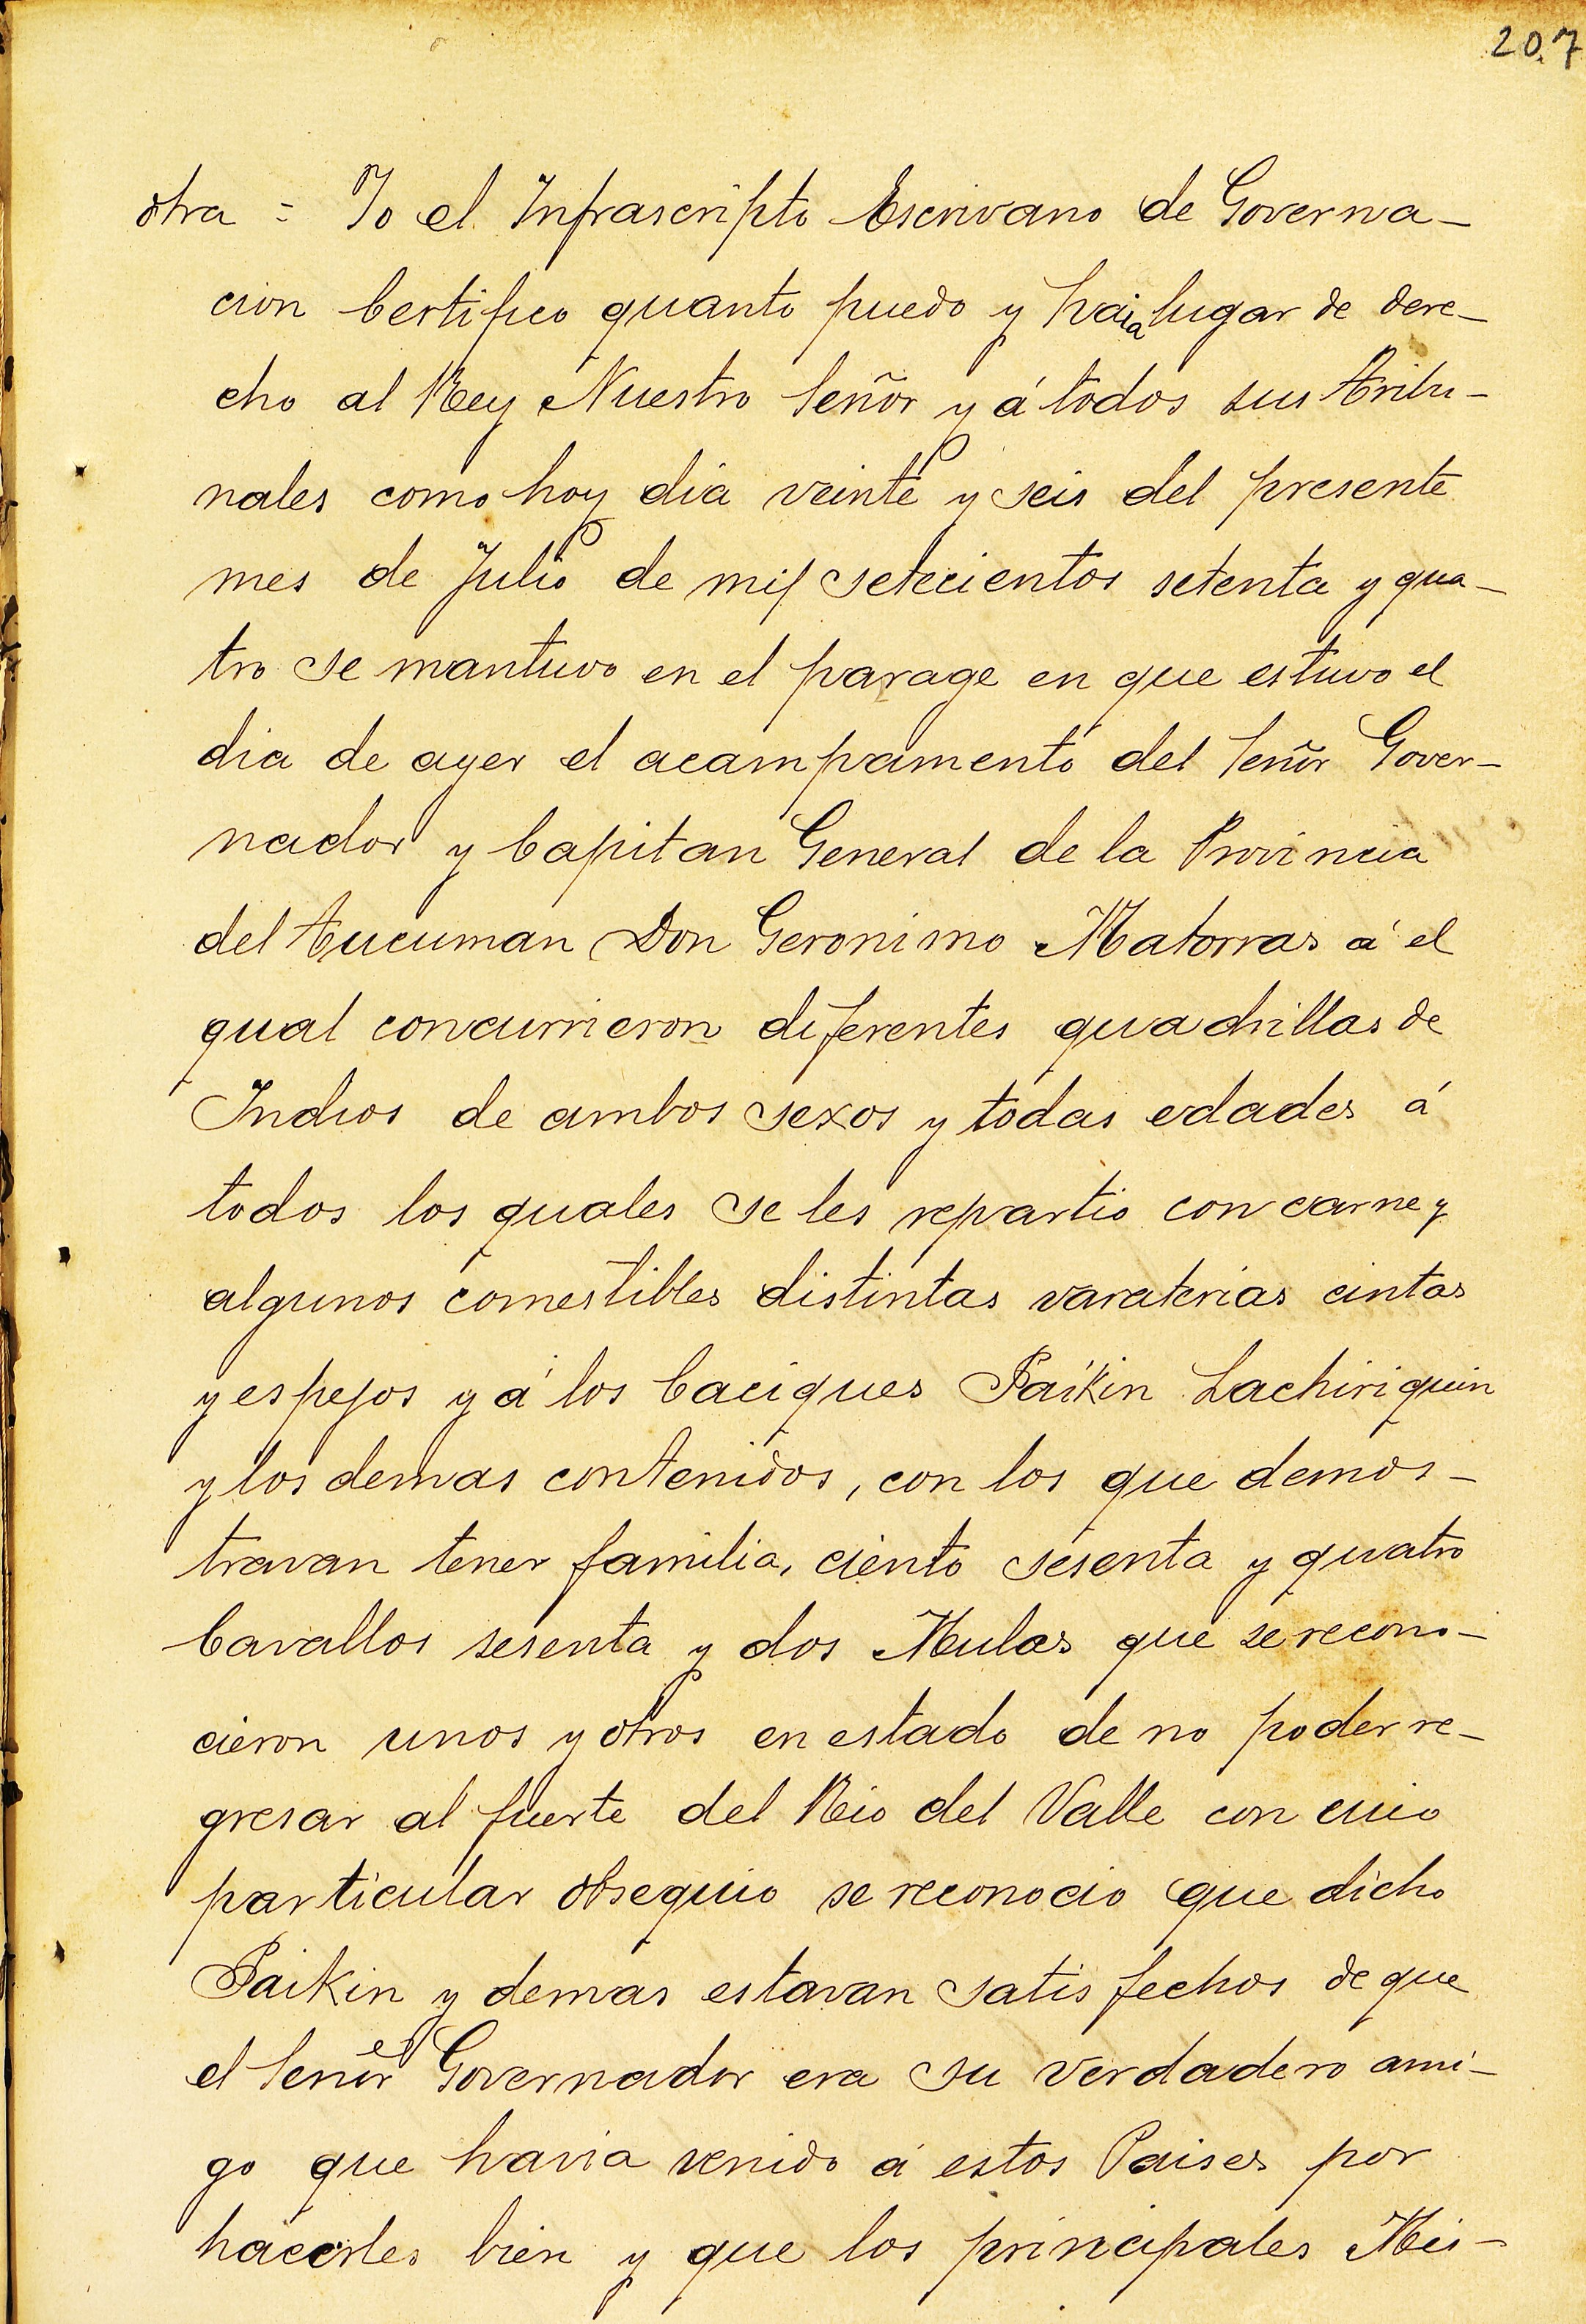 207
otra = Yo el Infrascripto Escrivano de Governa-
cion Certifico quanto puedo y haia lugar de dere-
cho al Rey Nuestro Señor y á todos sus Tribu-
nales como hoy dia veinte y seis del presente
mes de Julio de mil setecientos setenta y qua-
tro se mantuvo en el parage en que estuvo el
dia de ayer el acampamento del Señor Gover-
nador y Capitan General de la Provincia
del Tucuman Don Geronimo Matorras á el
qual concurrieron diferentes quadrillas de
Indios de ambos sexos y todas edades á
todos los quales se les repartio con carne y
algunos comestibles distintas varaterias cintas
y espejos y á los Caciques Paíkin Lachiriquin
y los demas contenidos, con los que demos-
travan tener familia, ciento sesenta y quatro
Cavallos sesenta y dos Mulas que se recono-
cieron unos y otros en estado de no poder re-
gresar al fuerte del Rio del Valle con cuio
particular obsequio se reconocio que dicho
Paikin y demas estavan satisfechos de que
el Señor Governador era su verdadero ami-
go que havia venido á estos Paises por
hacerles bien y que los principales Mis-